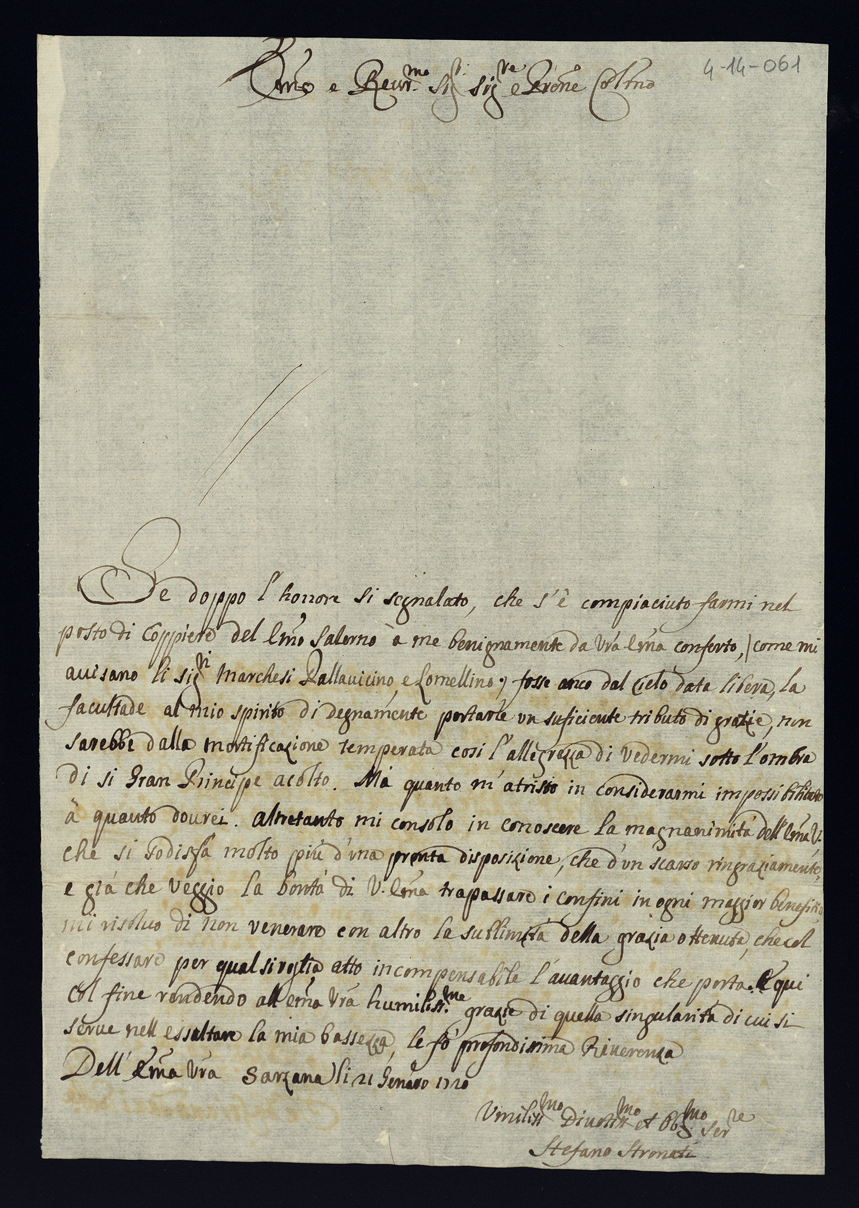 4-14-061
Emo e Revmo. Sigr. Sigre e Prone Colmo
Se doppo l'honore si segnalato, che s'è compiaciuto farmi nel
posto di Coppiere del Emo Salerno à me benignamente da Vrā Emā conferto, (come mi
avisano li sigri Marchesi Pallavicino, e Lomellino;) fosse anco dal Cielo data libera, la
facultade al mio spirito di degnamente portarle un suficiente tributo di grazie, non
sarebbe dalla mortificazione temperata così l'allegrezza di vedermi sotto l'ombra
di si Gran Principe acolto. Mà quanto m'atristo in considerarmi impossibilitato
à quanto dovrei. altretanto mi consolo in conoscere la magnanimità dell'Emā V.
che si sodisfà molto più d'una pronta disposizione, che d'un scarso ringraziamento,
e già che veggio la bontà di V. Emā trapassare i confini in ogni maggior benefizio
mi risoluo di non venerare con altro la sublimità della grazia ottenuta, che col
confessare per qual si voglia atto incompensabile l'avantaggio che porta. E qui
col fine rendendo all'Emā Vrā humilissme grazie di quella singularità di cui si
serve nell essaltare la mia bassezza, le fò profondissima Riverenza
Dell'Emā Vrā Sarzana li 21 Genaro 1720
Umilissmo Divotissmo et Obligmo Serre
Stefano Stronati